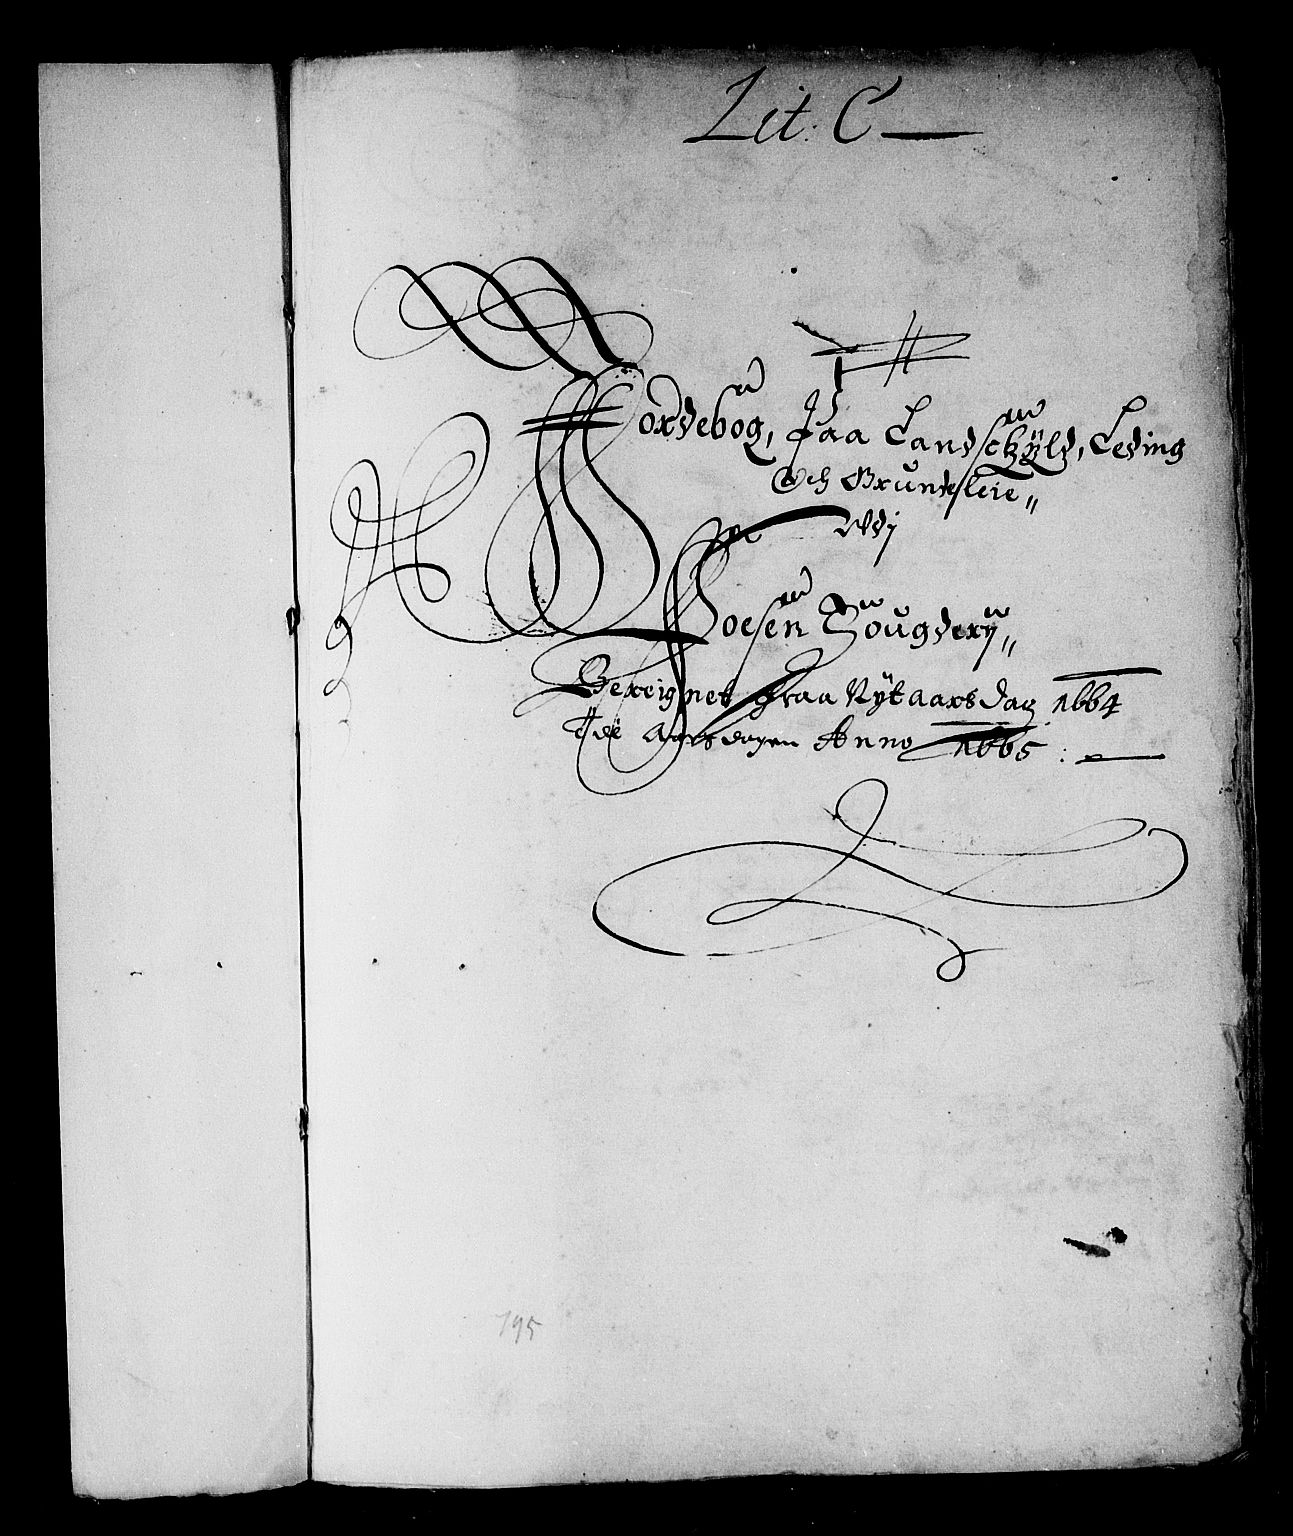 Lit: C
Jordebog, Paa Landschÿld, Leding
Och Grundeleie
Udj
Losen Fougderij
Bereignet fraa Nÿtaars dag 1664
Till Aarsdagen Anno 1665
795